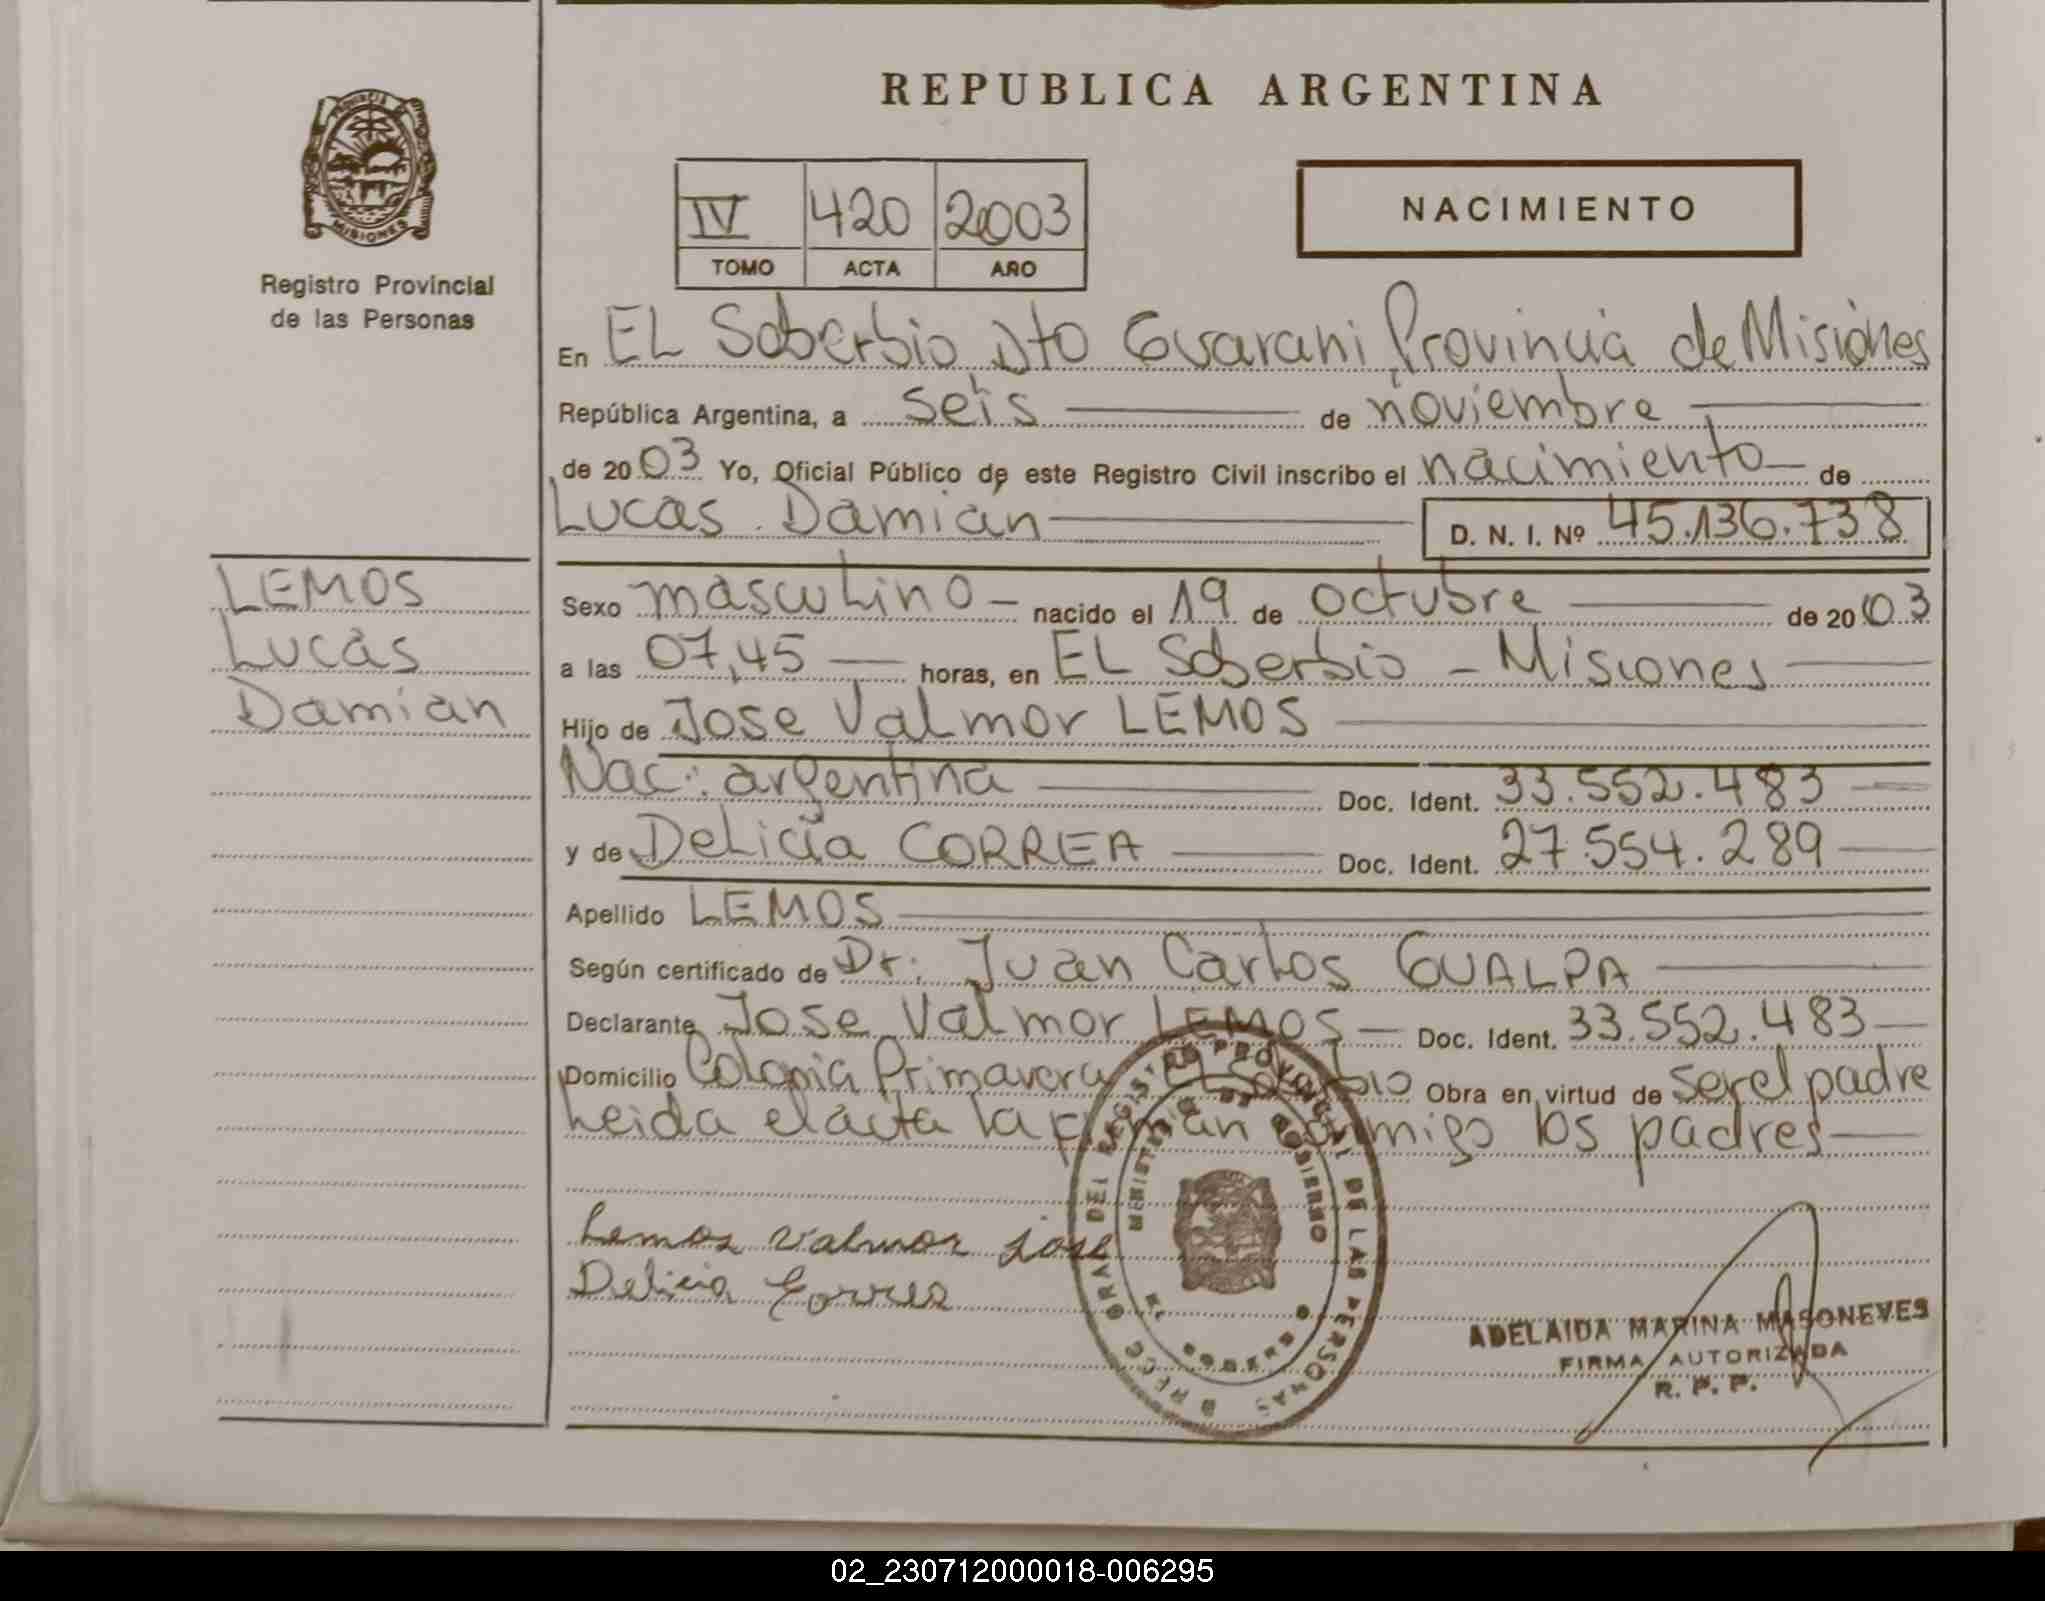 REPUBLICA ARGENTINA
PROVINCIA
MISIONES
Registro Provincial
de las Personas
IV 420 2003
TOMO ACTA AÑO
NACIMIENTO
En EL Soberbio Dto Guarani Provincia de Misiones
República Argentina, a seis de noviembre
de 2003 Yo, Oficial Público de este Registro Civil inscribo el nacimiento de
Lucas Damian D. N. I. Nº 45.136.738
LEMOS
Lucas
Damian
Sexo masculino nacido el 19 de octubre de 2003
a las 07,45 horas, en EL Soberbio - Misiones
Hijo de Jose Valmor LEMOS
Nac: argentina Doc. Ident. 33.552.483
y de Delicia CORREA Doc. Ident. 27.554.289
Apellido LEMOS
Según certificado de Dr: Juan Carlos GUALPA
Declarante Jose Valmor LEMOS Doc. Ident. 33.552.483
Domicilio Colonia Primavera El Soberbio Obra en virtud de ser el padre
Leida el acta la firman conmigo los padres
Lemos Valmor jose
Delicia Correa
REGISTRO PROVINCIAL DE LAS PERSONAS
MINISTERIO DE GOBIERNO
ADELAIDA MARINA MASONEVES
FIRMA AUTORIZADA
R. P. P.
02_230712000018-006295